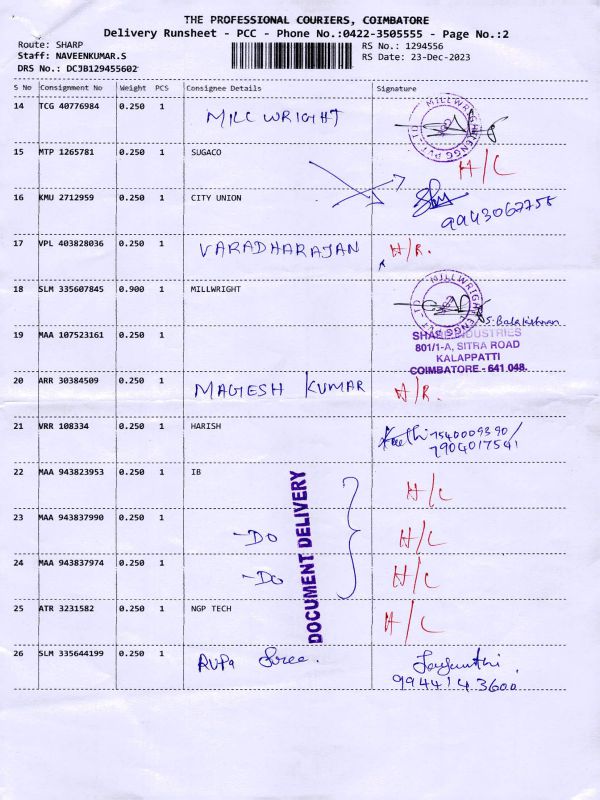 THE PROFESSIONAL COURIERS, COIMBATORE
Delivery Runsheet - PCC - Phone No.:0422-3505555 - Page No.:2
Route: SHARP RS No.: 1294556
Staff: NAVEENKUMAR.S RS Date: 23-Dec-2023
DRS No.: DCJB129455602
S No Consignment No Weight PCS Consignee Details Signature
14 TCG 40776984 0.250 1 MILL WRIGHT MILLWRIGHT ENGG PVT LTD
15 MTP 1265781 0.250 1 SUGACO H/C
16 KMU 2712959 0.250 1 CITY UNION
9943062755
17 VPL 403828036 0.250 1 VARADHARAJAN H/R.
18 SLM 335607845 0.900 1 MILLWRIGHT MILLWRIGHT ENGG PVT LTD
S. Balakrishnan
19 MAA 107523161 0.250 1 SHARP INDUSTRIES
801/1-A, SITRA ROAD
KALAPPATTI
COIMBATORE - 641 048.
20 ARR 30384509 0.250 1 MAGESH KUMAR H/R.
21 VRR 108334 0.250 1 HARISH 7540009390/
7904017541
22 MAA 943823953 0.250 1 IB H/C
23 MAA 943837990 0.250 1 -DO H/C
24 MAA 943837974 0.250 1 -DO H/C
DOCUMENT DELIVERY
25 ATR 3231582 0.250 1 NGP TECH H/C
26 SLM 335644199 0.250 1 RUPA Sree. Jayanthi
9944143600